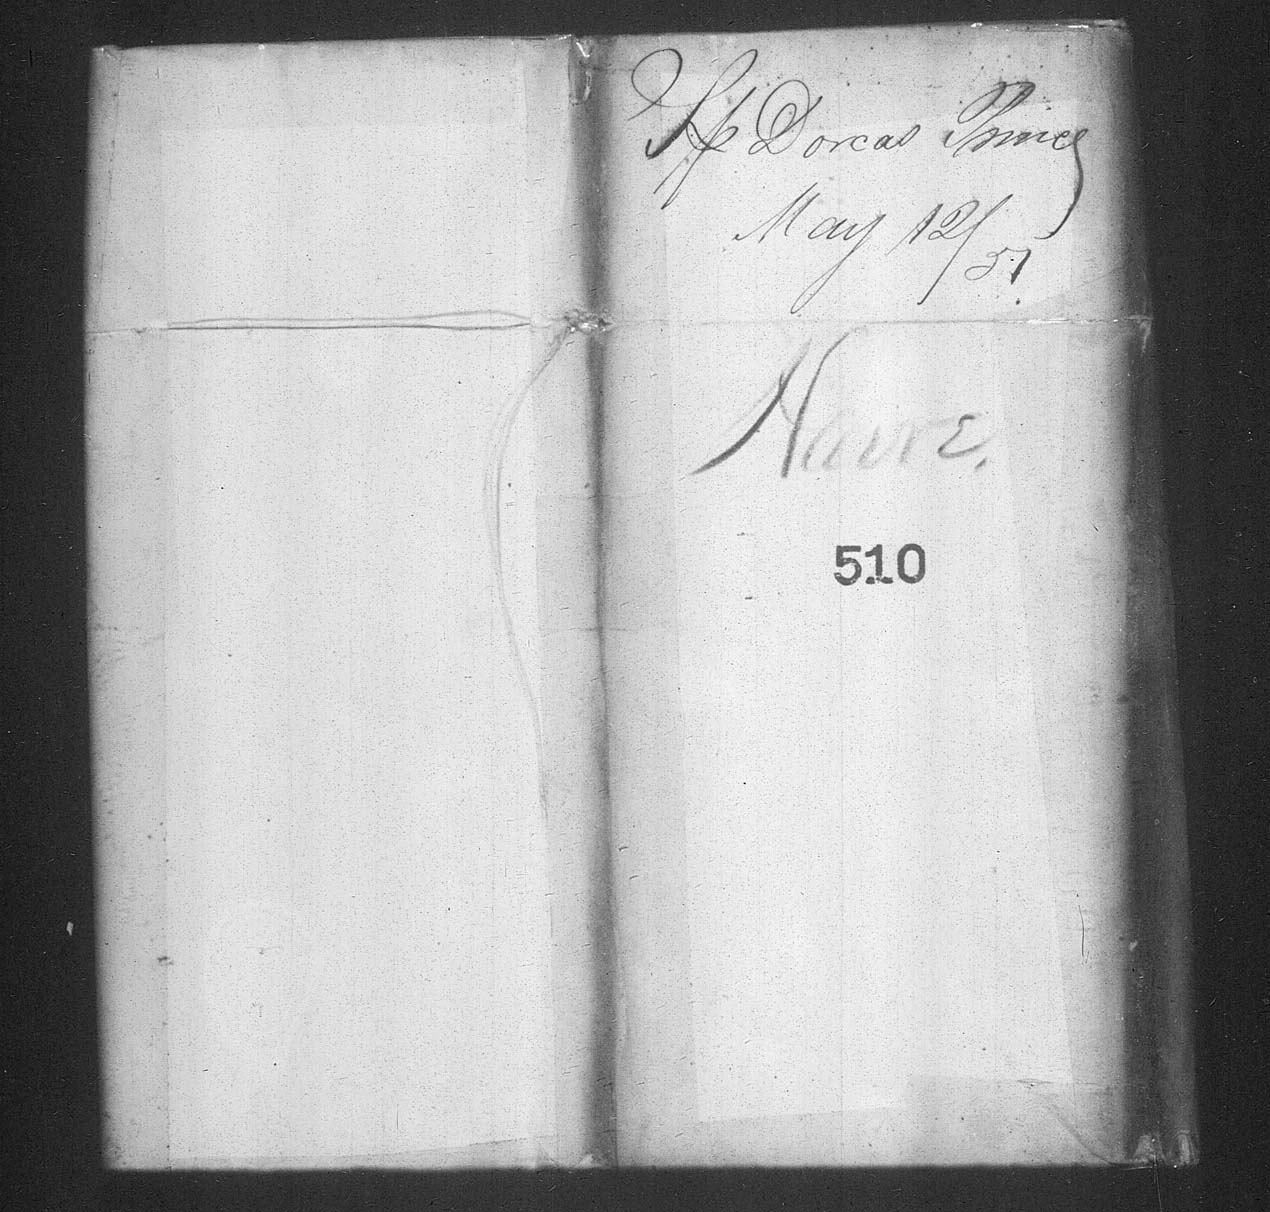 Dorcas Prince
May 12/51
Nave.
510